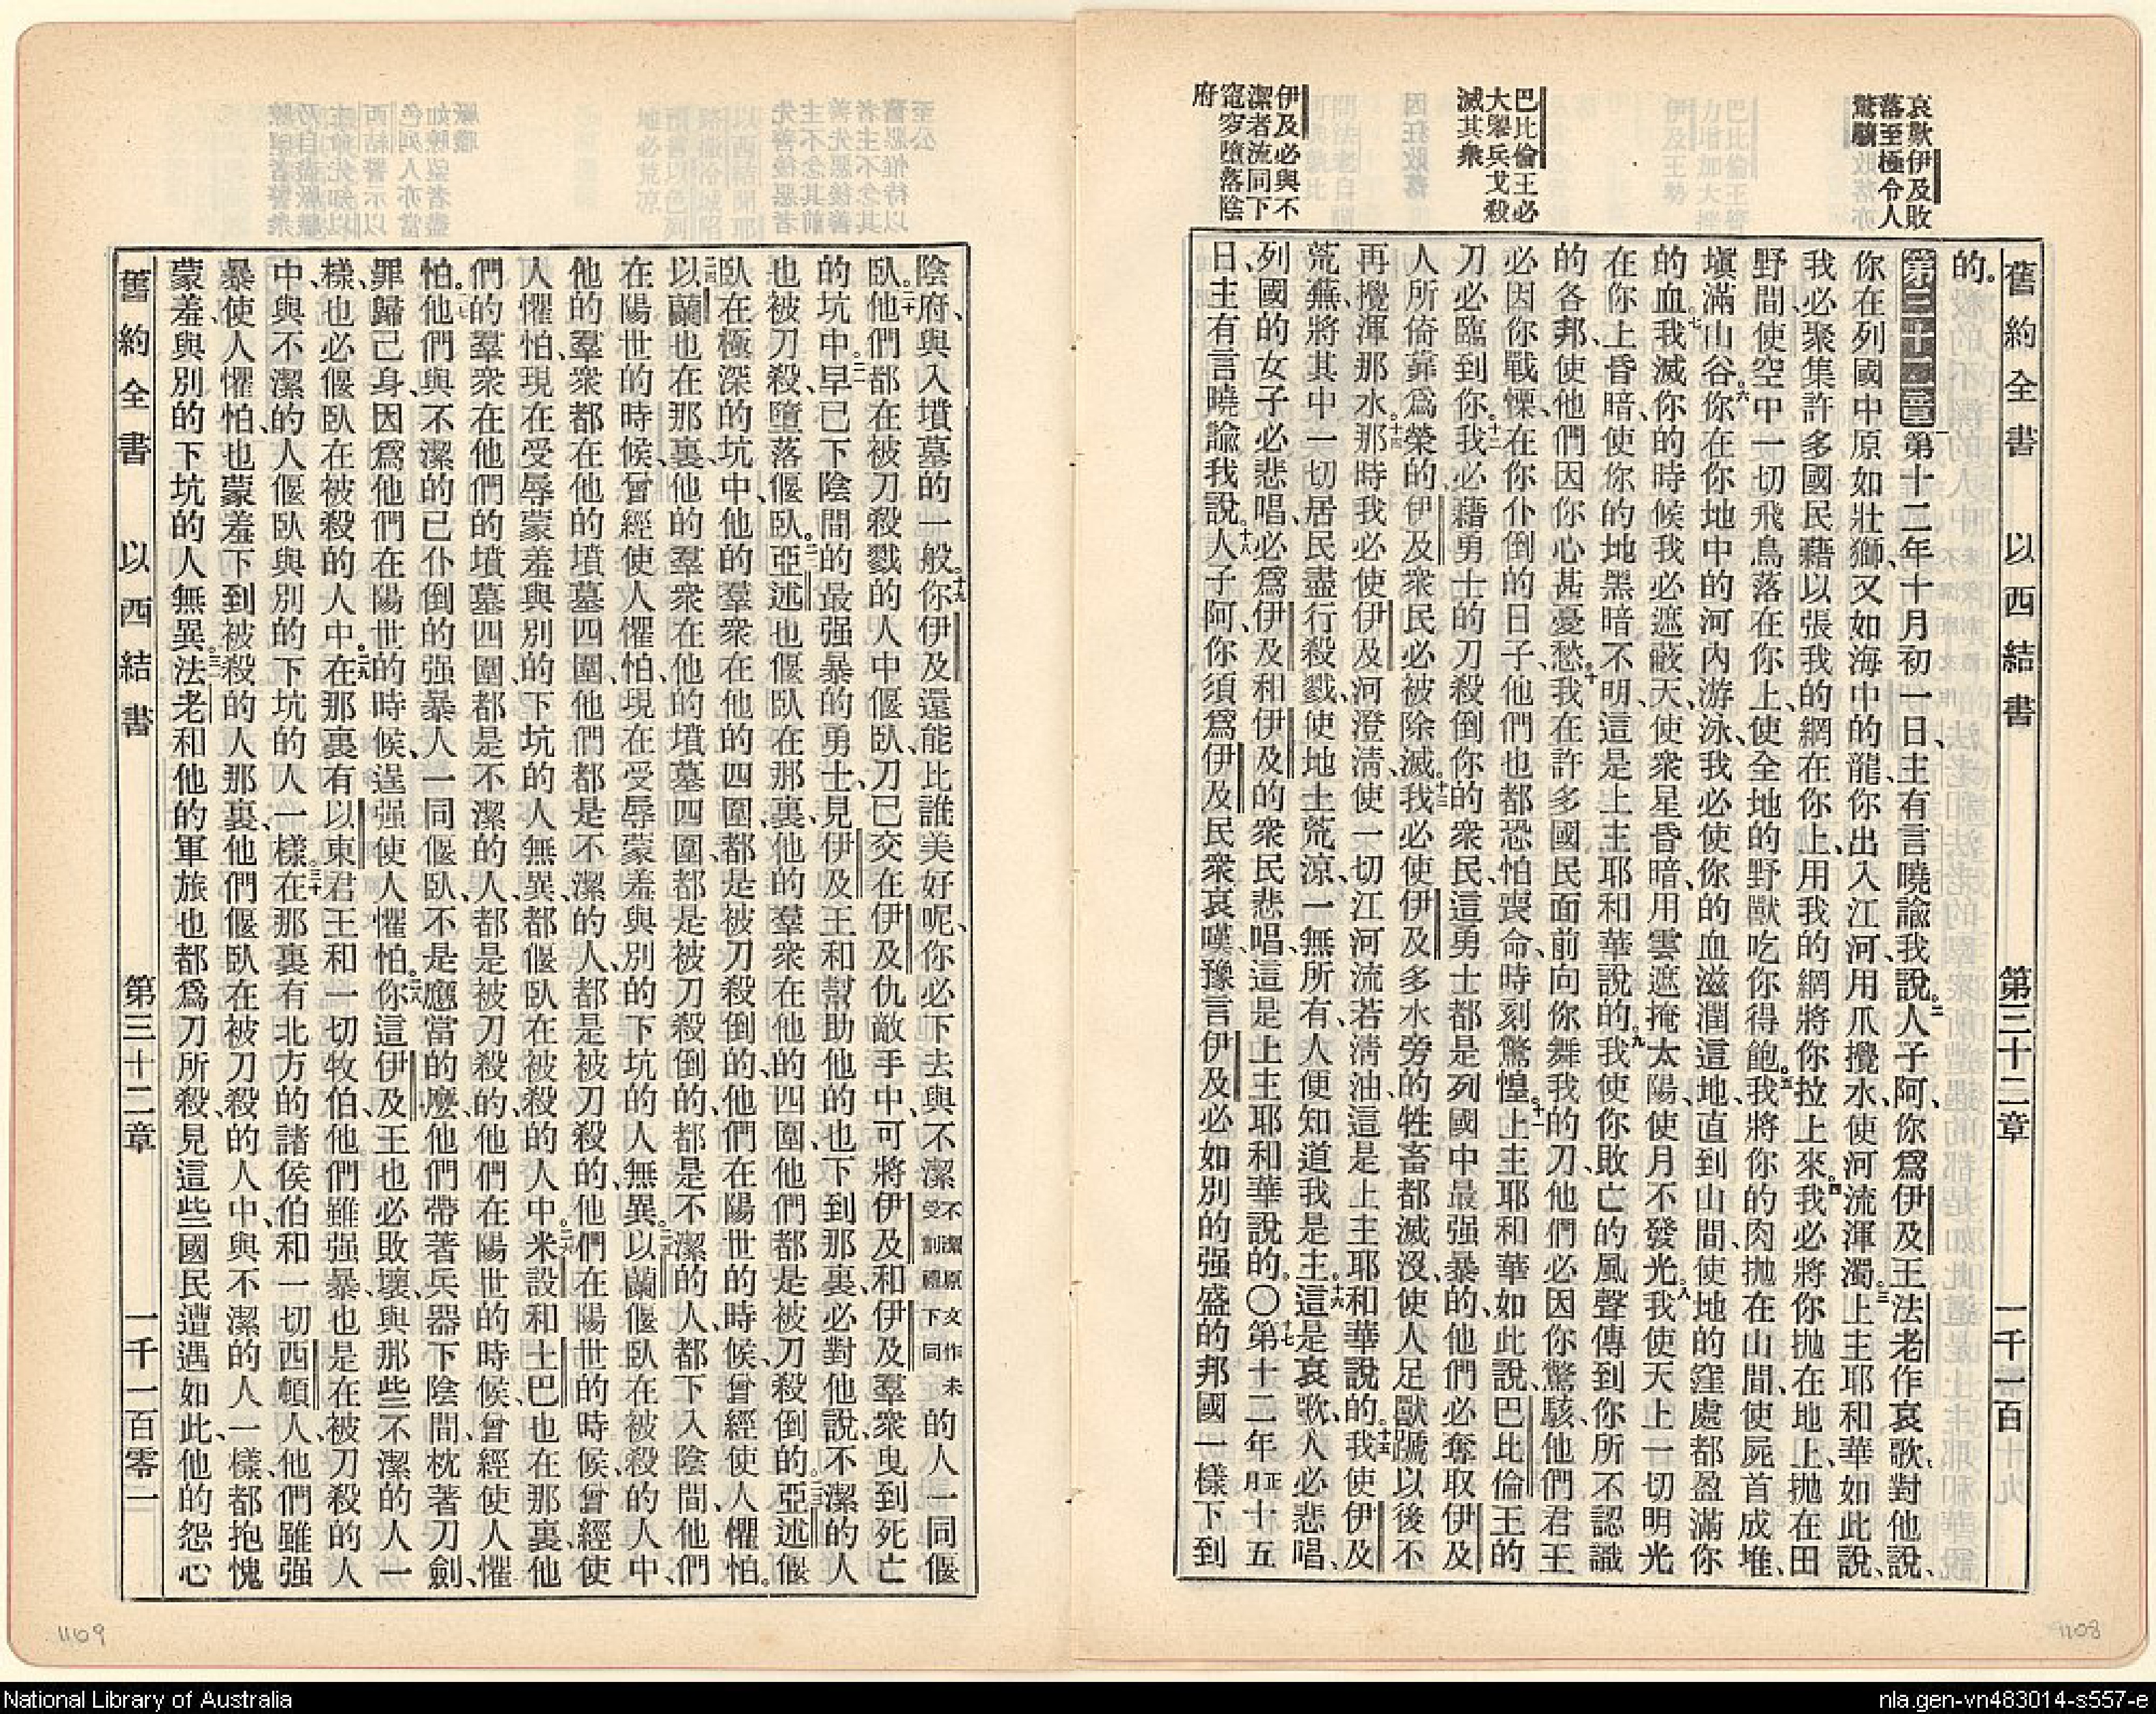 舊約全書 以西結書 第三十二章 一千一百
哀歎伊及敗
落至極令人
驚駭
巴比倫王必
大舉兵戈殺
滅其衆
伊及必與不
潔者流同下
窀穸墮落陰
府
的。
第三十二章 一第十二年十月初一日、主有言曉諭我說、二人子阿、你爲伊及王法老作哀歌、對他說、
你在列國中原如壯獅、又如海中的龍、你出入江河、用爪攪水、使河流渾濁。三上主耶和華如此說、
我必聚集許多國民、藉以張我的網在你上、用我的網將你拉上來。四我必將你抛在地上、抛在田
野間、使空中一切飛鳥落在你上、使全地的野獸吃你得飽。五我將你的肉抛在山間、使屍首成堆、
塡滿山谷。六你在你地中的河內游泳、我必使你的血滋潤這地、直到山間、使地的窪處都盈滿你
的血。七我滅你的時候、我必遮蔽天、使衆星昏暗、用雲遮掩太陽、使月不發光。八我使天上一切明光
在你上昏暗、使你的地黑暗不明、這是上主耶和華說的。九我使你敗亡的風聲傳到你所不認識
的各邦、使他們因你心甚憂愁。十我在許多國民面前、向你舞我的刀、他們必因你驚駭、他們君王
必因你戰慄、在你仆倒的日子、他們也都恐怕喪命、時刻驚惶。十一上主耶和華如此說、巴比倫王的
刀必臨到你。十二我必藉勇士的刀殺倒你的衆民、這勇士都是列國中最强暴的、他們必奪取伊及
人所倚靠爲榮的、伊及衆民必被除滅。十三我必使伊及多水旁的牲畜都滅沒、使人足獸蹏以後不
再攪渾那水。十四那時我必使伊及河澄淸、使一切江河流若淸油、這是上主耶和華說的。十五我使伊及
荒蕪、將其中一切居民盡行殺戮、使地土荒涼、一無所有、人便知道我是主。十六這是哀歌、人必悲唱、
列國的女子必悲唱、必爲伊及和伊及的衆民悲唱、這是上主耶和華說的。〇十七第十二年正月十五
日、主有言曉諭我說、十八人子阿、你須爲伊及民衆哀嘆、豫言伊及必如別的强盛的邦國一樣下到
陰府、與入墳墓的一般。十九你伊及還能比誰美好呢、你必下去與不潔不潔原文作未受割禮下同的人一同偃
臥。二十他們都在被刀殺戮的人中偃臥、刀已交在伊及仇敵手中、可將伊及和伊及羣衆曳到死亡
的坑中。二一早已下陰間的最强暴的勇士、見伊及王和幫助他的也下到那裏、必對他說、不潔的人
也被刀殺、墮落偃臥。二二亞述也偃臥在那裏、他的羣衆在他的四圍、他們都是被刀殺倒的。二三亞述偃
臥在極深的坑中、他的羣衆在他的四圍、都是被刀殺倒的、他們在陽世的時候、曾經使人懼怕。
二四以蘭也在那裏、他的羣衆在他的墳墓四圍、都是被刀殺倒的、都是不潔的人、都下入陰間、他們
在陽世的時候、曾經使人懼怕、現在受辱蒙羞、與別的下坑的人無異。二五以蘭偃臥在被殺的人中、
他的羣衆都在他的墳墓四圍、他們都是不潔的人、都是被刀殺的、他們在陽世的時候、曾經使
人懼怕、現在受辱蒙羞、與別的下坑的人無異、都偃臥在被殺的人中。二六米設和土巴也在那裏、他
們的羣衆在他們的墳墓四圍、都是不潔的人、都是被刀殺的、他們在陽世的時候、曾經使人懼
怕。二七他們與不潔的已仆倒的强暴人一同偃臥、不是應當的麽、他們帶著兵器下陰間、枕著刀劍、
罪歸己身、因爲他們在陽世的時候、逞强使人懼怕。二八你這伊及王也必敗壞、與那些不潔的人一
樣、也必偃臥在被殺的人中。二九在那裏有以東君王和一切牧伯、他們雖强暴、也是在被刀殺的人
中、與不潔的人偃臥、與別的下坑的人一樣。三十在那裏有北方的諸侯伯和一切西頓人、他們雖强
暴使人懼怕、也蒙羞下到被殺的人那裏、他們偃臥在被刀殺的人中、與不潔的人一樣、都抱愧
蒙羞、與別的下坑的人無異。三一法老和他的軍旅也都爲刀所殺、見這些國民遭遇如此、他的怨心
舊約全書 以西結書 第三十二章 一千一百零一
1109
1108
National Library of Australia
nla.gen-vn483014-s557-e